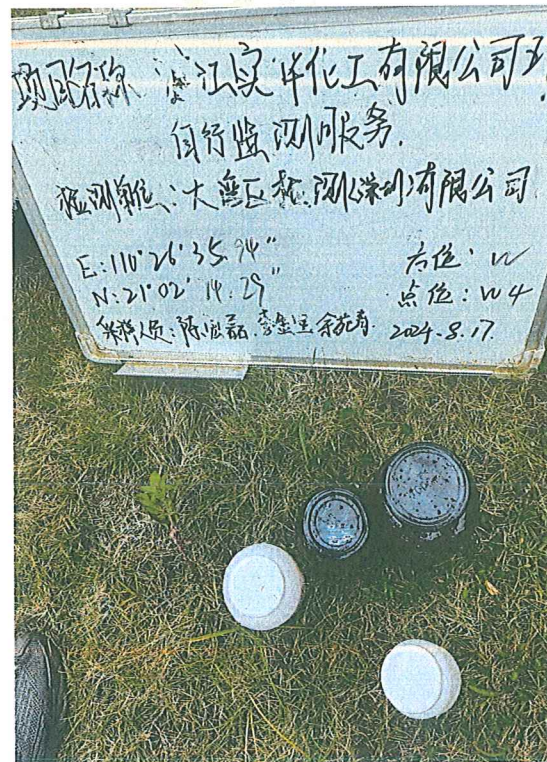 项目名称 湛江实华化工有限公司土
自行监测服务.
检测单位:大湾区检测(深圳)有限公司
E:110°26'35.94" 方位:W
N:21°02'14.29" 点位:W4
采样人员:陈 2024.8.17.